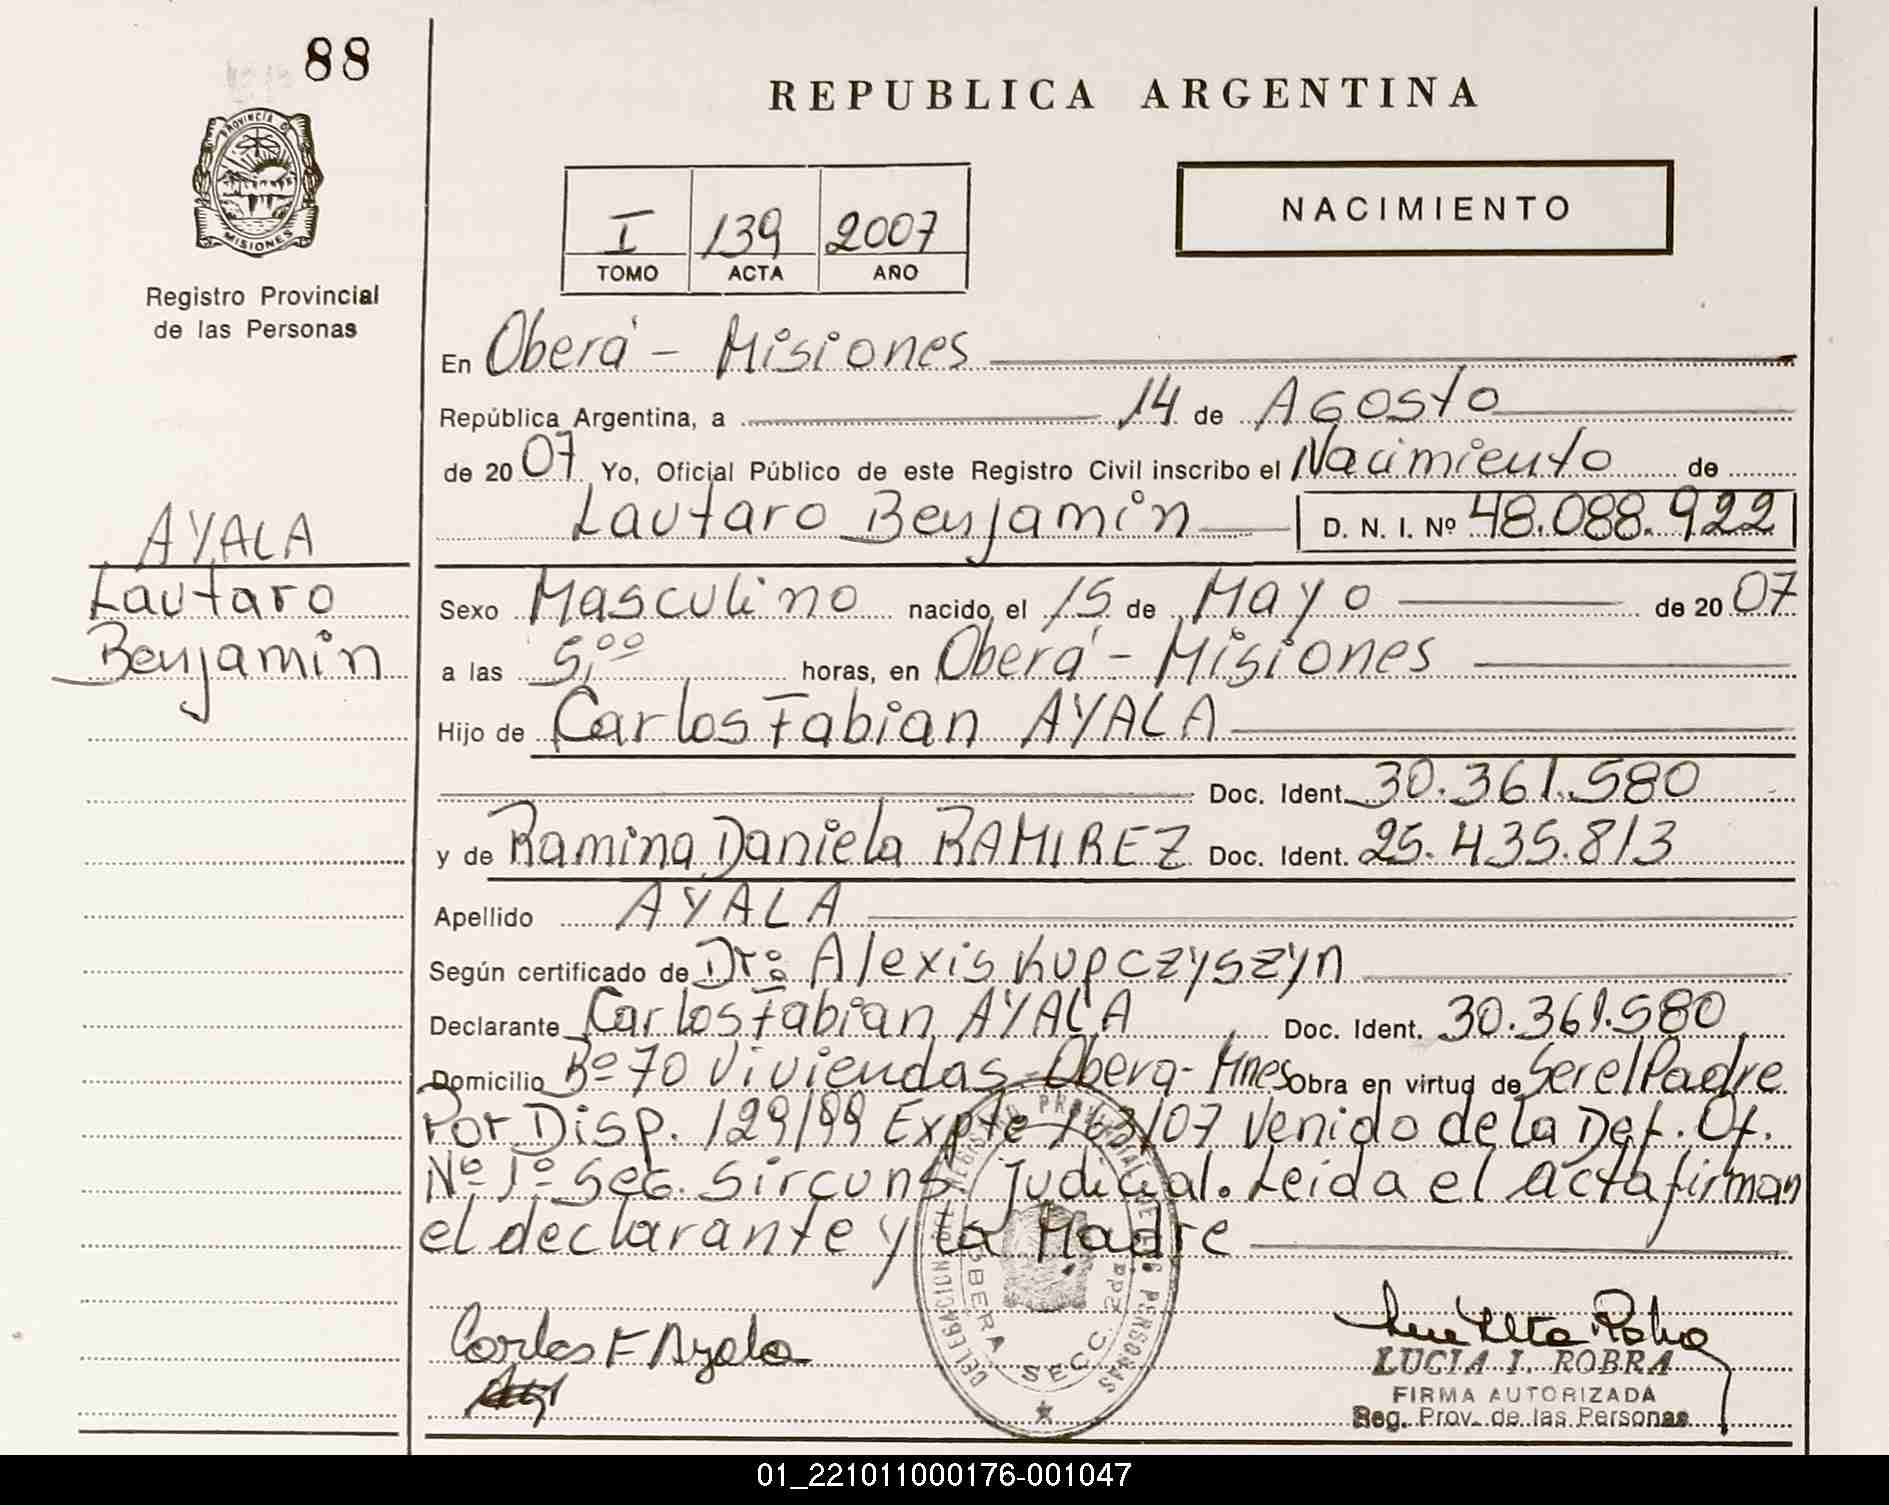 88
REPUBLICA ARGENTINA
PROVINCIA D
MISIONES
Registro Provincial
de las Personas
I 139 2007
TOMO ACTA AÑO
NACIMIENTO
En Oberá - Misiones
República Argentina, a 14 de Agosto
de 20 07 Yo, Oficial Público de este Registro Civil inscribo el Nacimiento de
Lautaro Benjamin D. N. I. Nº 48.088.922
AYALA
Lautaro
Benjamin
Sexo Masculino nacido el 15 de Mayo de 20 07
a las 5,00 horas, en Oberá - Misiones
Hijo de Carlos Fabian AYALA
Doc. Ident. 30.361.580
y de Ramina Daniela RAMIREZ Doc. Ident. 25.435.813
Apellido AYALA
Según certificado de Dr. Alexis Kupczyszyn
Declarante Carlos Fabian AYALA Doc. Ident. 30.361.580
Domicilio Bº 70 Viviendas - Obera - Mnes Obra en virtud de Ser el Padre
Por Disp. 129/99 Expte 163/07 Venido de la Def. Of.
Nº 1º Sec. Sircuns. Judicial. Leida el acta firman
el declarante y la Madre
DELEGACION DEL REGISTRO PROVINCIAL DE LAS PERSONAS
OBERA SECC. 2da
Carlos F Ayala
LUCIA I. ROBRA
FIRMA AUTORIZADA
Reg. Prov. de las Personas
01_221011000176-001047